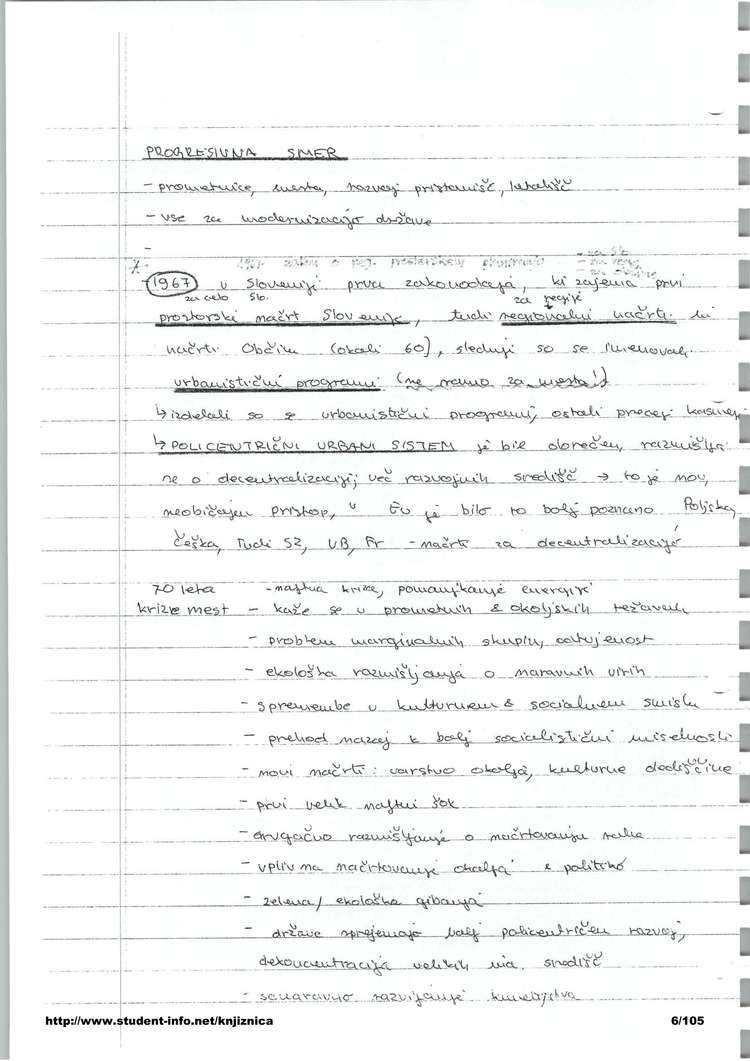 PROGRESIVNA SMER
- prometnice, mesta, razvoj pristanišč, letališč
- vse za modernizacijo države
-
1967 zakon o reg. prostorskem planiranju - za Slo.
- za regije
- za občine
1967 v Sloveniji prva zakonodaja, ki zajema prvi
za celo Slo. za regije
prostorski načrt Slovenije, tudi regionalni načrti in
načrti Občin (okoli 60), slednji so se imenovali
urbanistični programi (ne samo za mesta!)
↳ izdelali so se urbanistični programi, ostali precej kasneje
↳ POLICENTRIČNI URBANI SISTEM je bil obrečen, razmišlja
ne o decentralizaciji, več razvojnih središč → to je nov,
neobičajen pristop, v Eu je bilo to bolj poznano Poljska,
Češka, Tudi SZ, VB, Fr - načrti za decentralizacijo
70 leta - naftna kriza, pomanjkanje energije
krize mest - kaže se v prometnih & okoljskih težavah
- problem marginalnih skupin, odtujenost
- ekološka razmišljanja o naravnih virih
- spremembe v kulturnem & socialnem smislu
- prehod nazaj k bolj socialistični miselnosti
- novi načrti: varstvo okolja, kulturne dediščine
- prvi velik naftni šok
- drugačno razmišljanje o načrtovanju
- vpliv na načrtovanje okolja & politiko
- zelena/ekološka gibanja
- države sprejemajo bolj policentričen razvoj,
dekoncentracija velikih središč
- sonaravno razvijanje kmetijstva
http://www.student-info.net/knjiznica 6/105